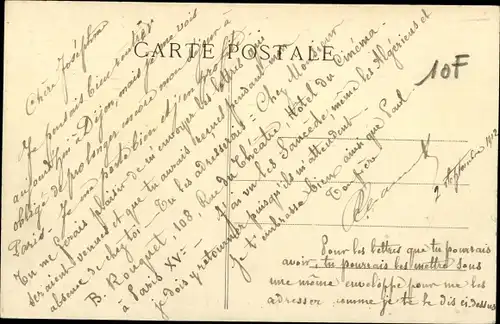 CARTE POSTALE
10F
Chère Joséphine
Je pensais bien rentrer
aujourd'hui à Dijon, mais je me vois
obligé de prolonger encore mon séjour à
Paris. Je me porte bien et j'en profite
Tu me ferais plaisir de m'envoyer les lettres qui
seraient venues et que tu aurais reçues pendant mon
absence de chez toi. Tu les adresserais: Chez Monsieur
B. Rouquet 108, Rue du Théâtre Hôtel du Cinéma
à Paris XVe
J'ai vu les Sancède, même les Algériens et
je dois y retourner puisqu'ils m'attendent
Je t'embrasse bien ainsi que Paul
Ton père
2 septembre 1912
Pour les lettres que tu pourrais
avoir, tu pourrais les mettre sous
une même enveloppe pour me les
adresser comme je te le dis ci-dessus